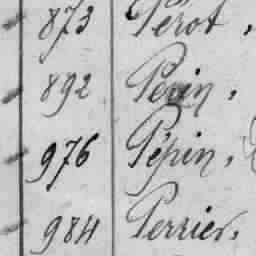 873 Pérot,
892 Perin,
976 Pépin,
984 Perrier,